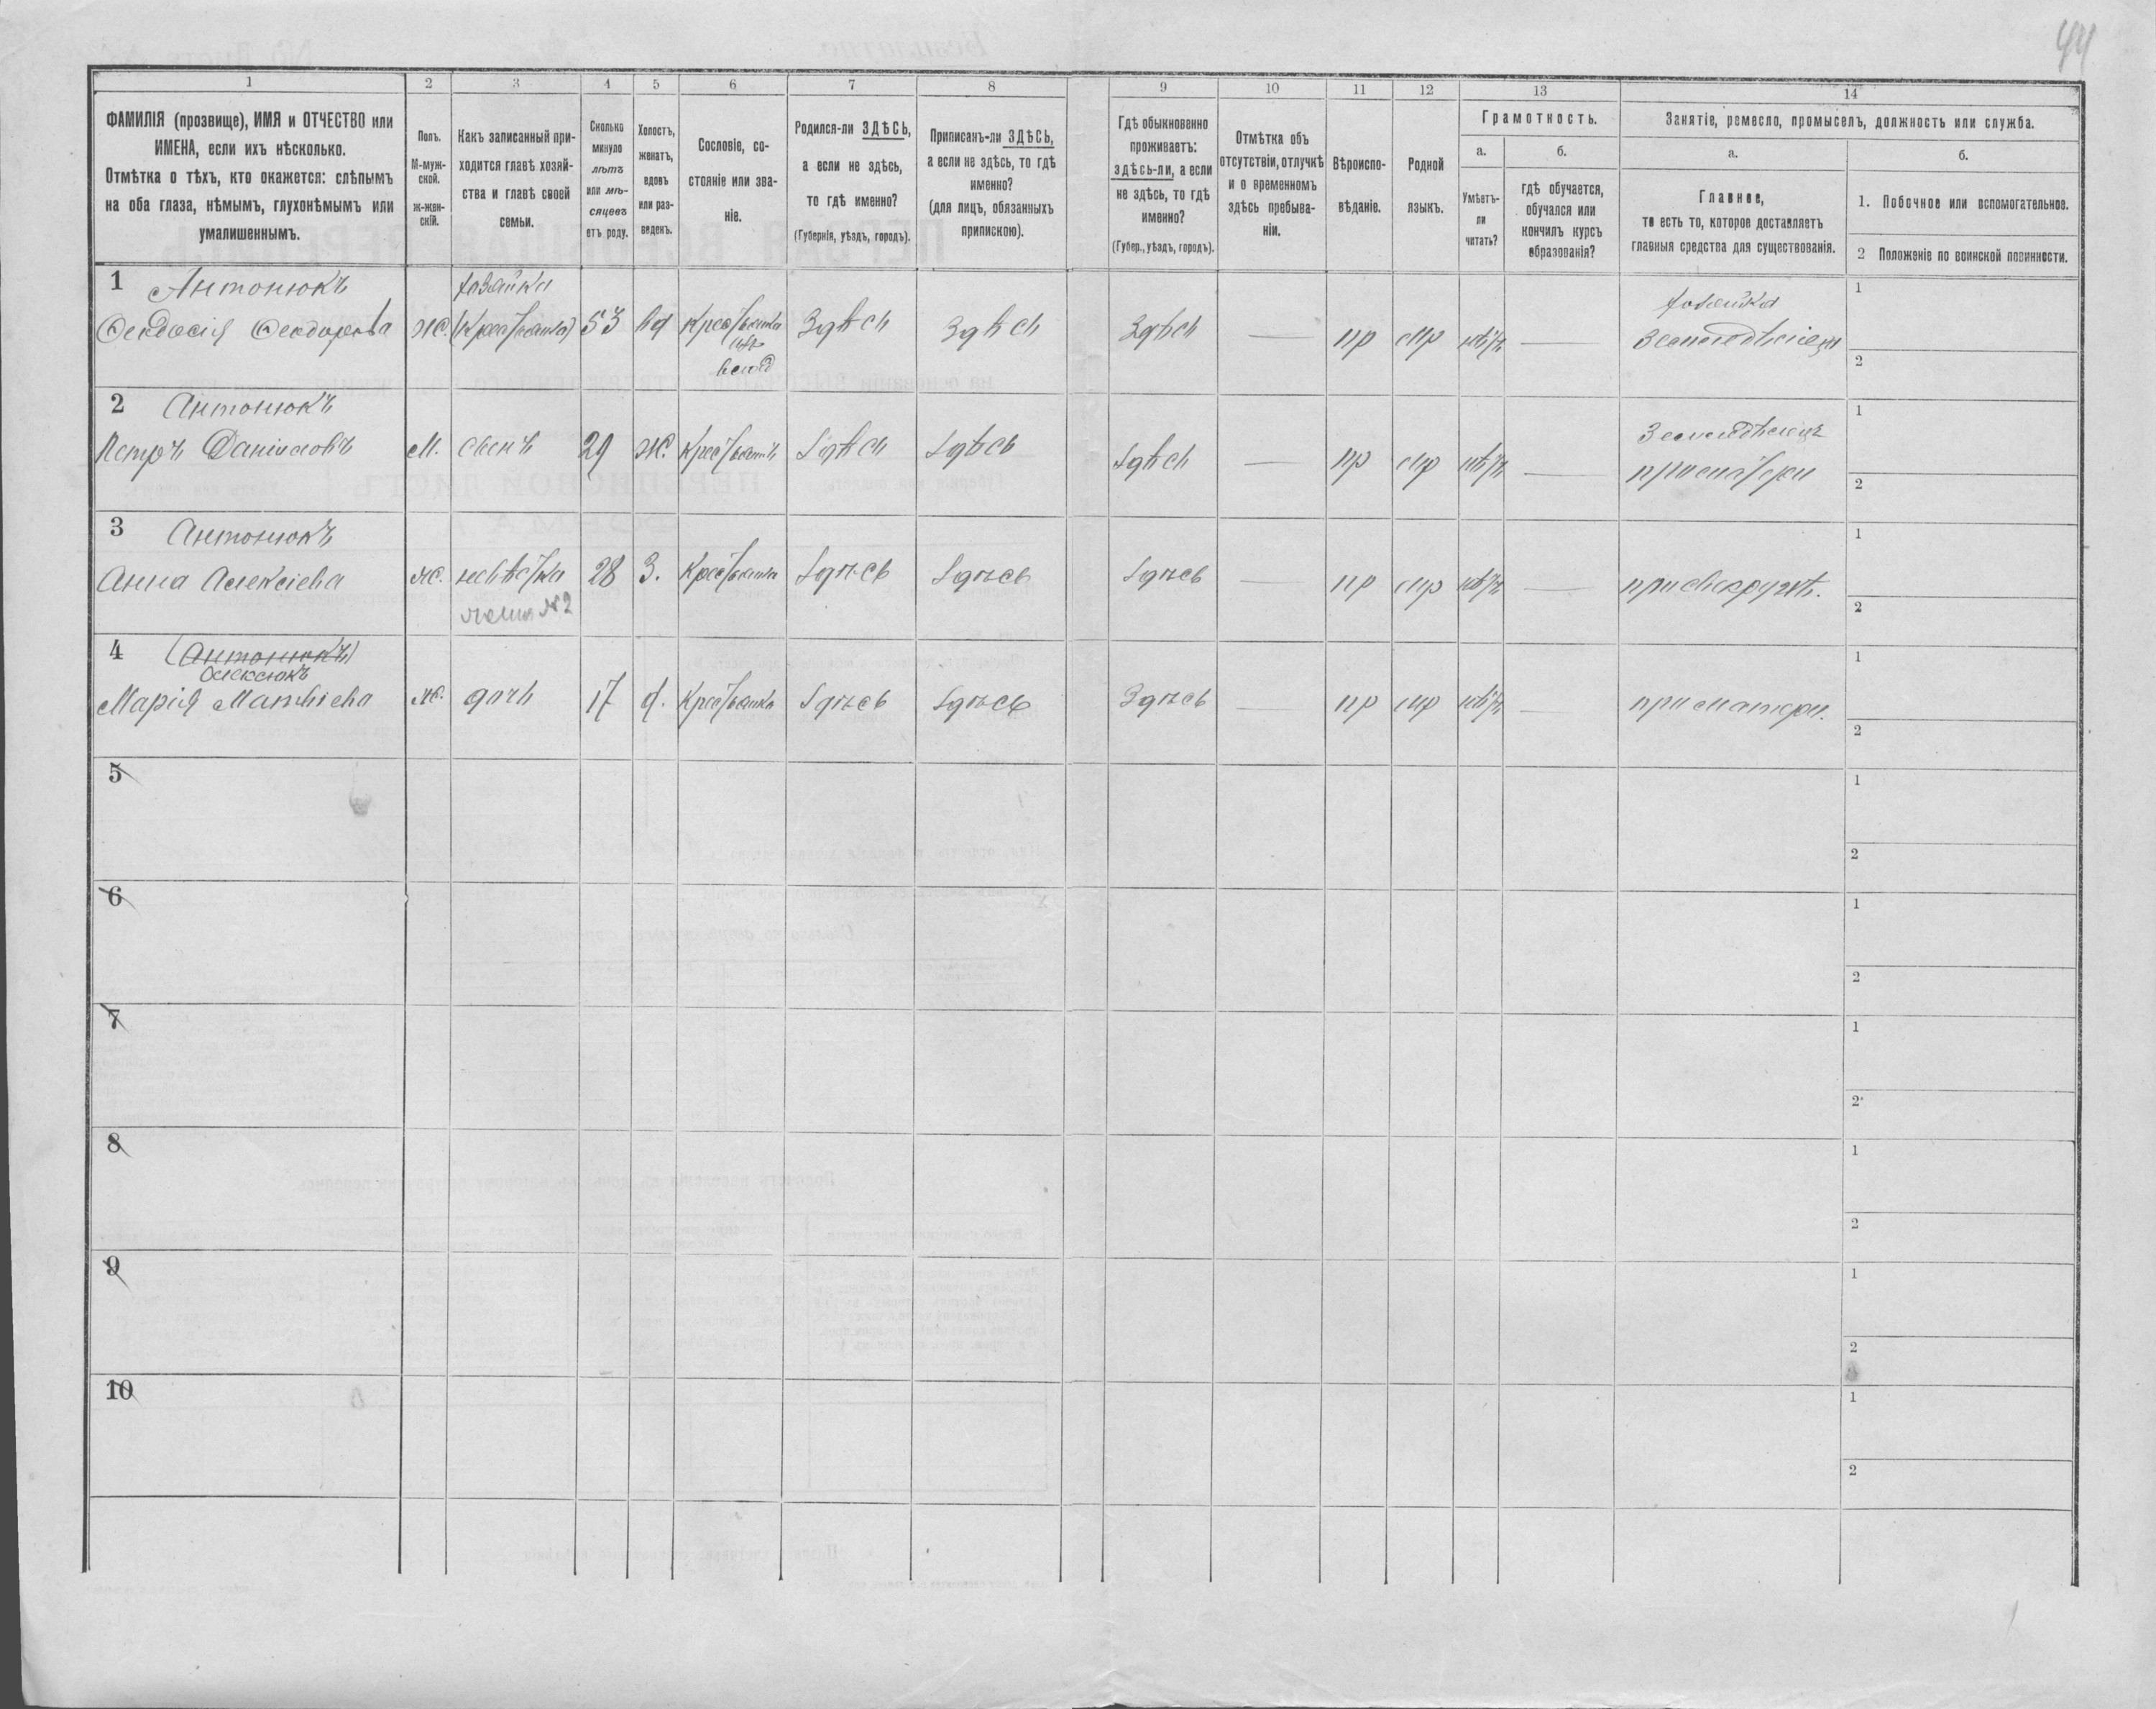 44
1
2
3
4
5
6
7
8
9
10
11
12
13
14
ФАМИЛІЯ (прозвище), ИМЯ и ОТЧЕСТВО или
ИМЕНА, если ихъ нѣсколько.
Отмѣтка о тѣхъ, кто окажется: слѣпымъ
на оба глаза, нѣмымъ, глухонѣмымъ или
умалишеннымъ.
Полъ.
М-муж-
ской.
ж-жен-
скій.
Какъ записанный при-
ходится главѣ хозяй-
ства и главѣ своей
семьи.
Сколько
минуло
лѣтъ
или мѣ-
сяцевъ
отъ роду.
Холостъ,
женатъ,
вдовъ
или раз-
веденъ.
Сословіе, со-
стояніе или зва-
ніе.
Родился-ли ЗДѢСЬ,
а если не здѣсь,
то гдѣ именно?
(Губернія, уѣздъ, городъ).
Приписанъ-ли ЗДѢСЬ,
а если не здѣсь, то гдѣ
именно?
(для лицъ, обязанныхъ
припискою).
Гдѣ обыкновенно
проживаетъ:
здѣсь-ли, а если
не здѣсь, то гдѣ
именно?
(Губер., уѣздъ, городъ).
Отмѣтка объ
отсутствіи, отлучкѣ
и о временномъ
здѣсь пребыва-
ніи.
Вѣроиспо-
вѣданіе.
Родной
языкъ.
Грамотность.
а.
Умѣетъ-
ли
читать?
б.
гдѣ обучается,
обучался или
кончилъ курсъ
образованія?
Занятіе, ремесло, промыселъ, должность или служба.
а.
Главное,
то есть то, которое доставляетъ
главныя средства для существованія.
б.
1. Побочное или вспомогательное.
2 Положеніе по воинской повинности.
1 Антонюкъ
Феодосія Феодорова
ж.
хозяйка
(Крестьянка)
53
вд
Крестьянка
Здѣсь
Здѣсь
Здѣсь
—
пр
мр
нѣтъ
—
хозяйка
Земледѣлецъ
1
2
2 Антонюкъ
Петръ Даніиловъ
М.
сынъ
29
ж.
Крестьянъ
Здѣсь
Здѣсь
Здѣсь
—
пр
мр
нѣтъ
—
Земледѣлецъ
при матери
1
2
3 Антонюкъ
Анна Алексіева
ж.
невѣстка
жена №2
28
З.
Крестьянка
Здѣсь
Здѣсь
Здѣсь
—
пр
мр
нѣтъ
—
при свекрухѣ.
1
2
4 (Антонюкъ)
Олексюкъ
Марія Матвіева
ж.
дочь
17
д.
Крестьянка
Здѣсь
Здѣсь
Здѣсь
—
пр
мр
нѣтъ
—
при матери.
1
2
5
1
2
6
1
2
7
1
2
8
1
2
9
1
2
10
1
2